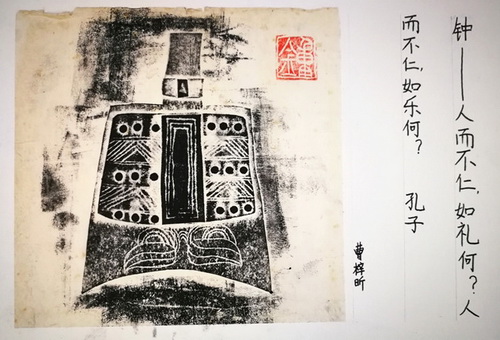 钟——人而不仁，如礼何？人
而不仁，如乐何？ 孔子
曹梓昕